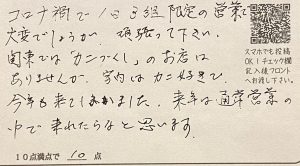 コロナ禍で1日3組限定の営業で
大変でしょうが、頑張って下さい。
関東では「カニづくし」のお店は
ありませんが、家内はカニ好きで、
今年も来てしまいました。来年は通常営業の
中で来れたらなと思います。
10点満点で 10 点
スマホでも投稿
OK！チェック欄
記入後フロント
へお渡し下さい。